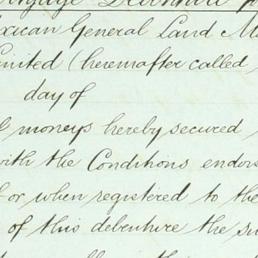 Mortgage Debenture
exican General Land M
imited (hereinafter called
day of
moneys hereby secured
with the Conditions endors
or when registered to the
of this debenture the su